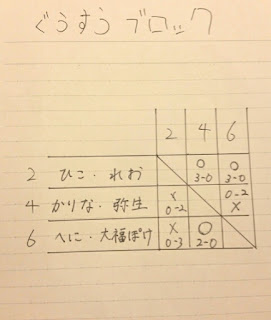 ぐうすうブロック
2 4 6
2 ひこ・れお ○ 3-0 ○ 3-0
4 かりな・弥生 × 0-2 0-2 ×
6 へに・大福ぽけ × 0-3 ○ 2-0